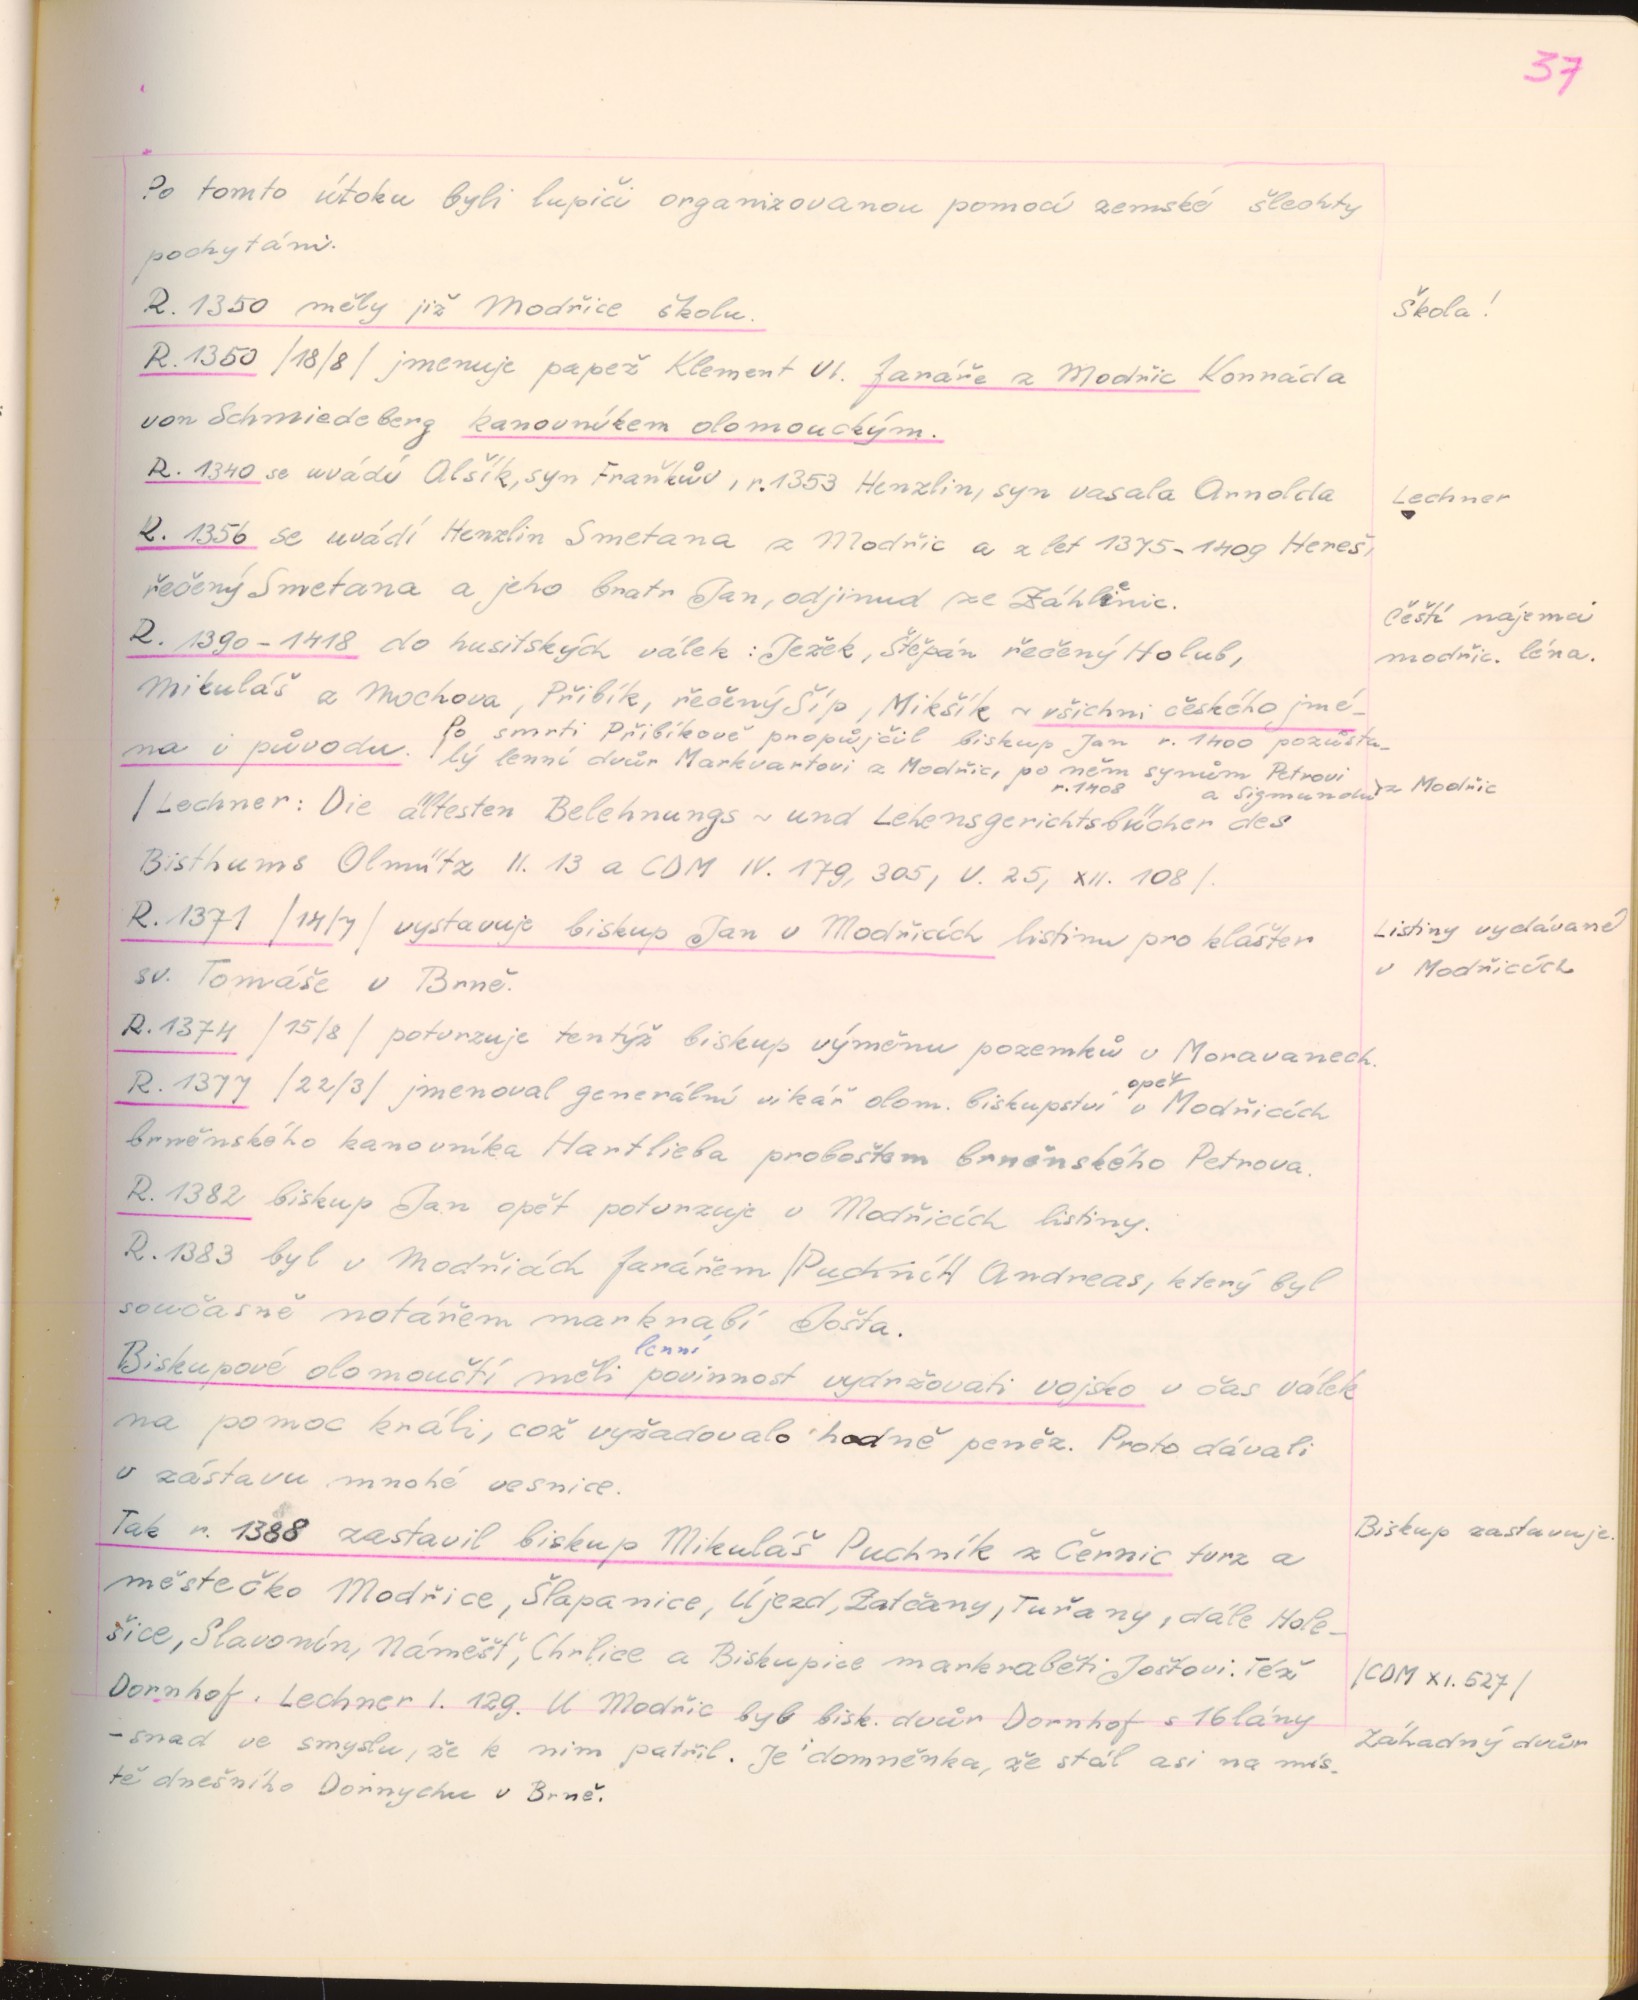 37
Po tomto útoku byli lupiči organizovanou pomocí zemské šlechty
pochytáni.
R. 1350 měly již Modřice školu.
Škola!
R. 1350 /18/8/ jmenuje papež Klement VI. faráře z Modřic Konráda
von Schmiedeberg kanovníkem olomouckým.
R. 1340 se uvádí Alšík, syn Fraňkův, r. 1353 Henzlin, syn vasala Arnolda
Lechner
R. 1356 se uvádí Henzlin Smetana z Modřic a z let 1375-1409 Hereš,
řečený Smetana a jeho bratr Jan, odjinud ze Záhlinic.
R. 1390-1418 do husitských válek: Ježek, Štěpán řečený Holub,
Čeští nájemci
modřic. léna.
Mikuláš z Mochova, Přibík, řečený Šíp, Mikšík ~ všichni českého jmé-
na i původu. Po smrti Přibíkově propůjčil biskup Jan r. 1400 pozůsta-
lý lenní dvůr Markvartovi z Modřic, po něm synům Petrovi
r. 1408 a Sigmundu z Modřic
/Lechner: Die ältesten Belehnungs ~ und Lehensgerichtsbücher des
Bisthums Olmütz II. 13 a CDM IV. 179, 305, V. 25, XII. 108/.
R. 1371 /14/7/ vystavuje biskup Jan v Modřicích listinu pro klášter
Listiny vydávané
v Modřicích
sv. Tomáše v Brně.
R. 1374 /15/8/ potvrzuje tentýž biskup výměnu pozemků v Moravanech.
R. 1377 /22/3/ jmenoval generální vikář olom. biskupství opět v Modřicích
brněnského kanovníka Hartlieba proboštem brněnského Petrova.
R. 1382 biskup Jan opět potvrzuje v Modřicích listiny.
R. 1383 byl v Modřicích farářem /Puchník/ Andreas, který byl
současně notářem markrabí Jošta.
Biskupové olomoučtí měli lenní povinnost vydržovati vojsko v čas válek
na pomoc králi, což vyžadovalo hodně peněz. Proto dávali
v zástavu mnohé vesnice.
Tak r. 1388 zastavil biskup Mikuláš Puchník z Černic tvrz a
Biskup zastavuje.
městečko Modřice, Šlapanice, Újezd, Žatčany, Tuřany, dále Hole-
šice, Slavonín, Náměšť, Chrlice a Biskupice markraběti Joštovi. Též
/CDM XI. 527/
Dornhof. Lechner I. 129. U Modřic byl bisk. dvůr Dornhof s 16 lány
Záhadný dvůr
- snad ve smyslu, že k nim patřil. Je i domněnka, že stál asi na mís-
tě dnešního Dornychu v Brně.